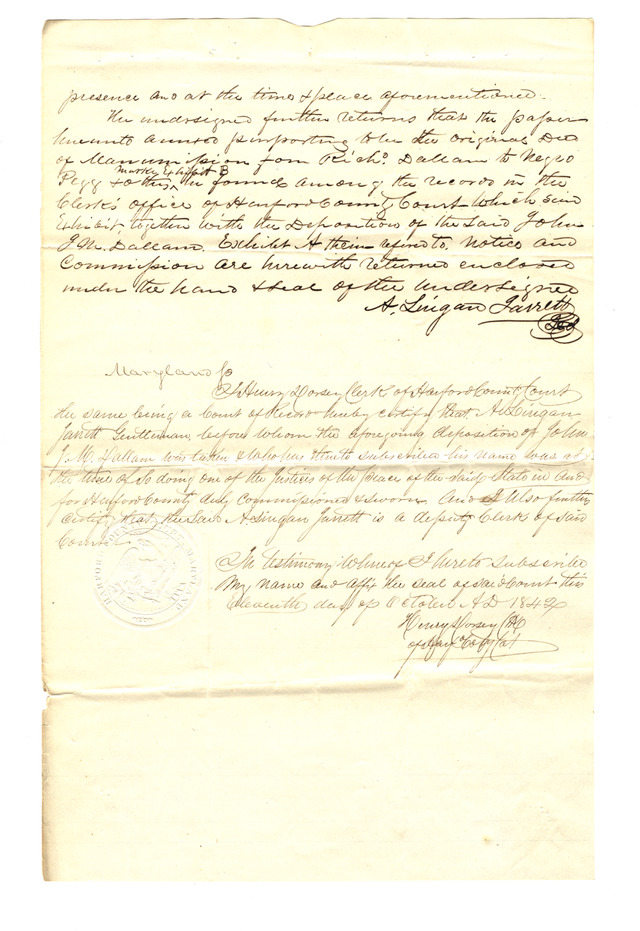 presence and at the time & place aforementioned.
The undersigned further returns that the paper
hereunto annexed purporting to be the original Deed
of Manumission from Richd. Dallam to Negro
marked Exhibit B
Pegg & others, he found among the records in the
Clerk's office of Harford County Court which said
Exhibit, together with the Depositions of the said John
J. M. Dallam. Exhibit A therein refered to, Notice and
Commission are herewith returned enclosed
under the hand & seal of the undersigned
A. Lingan Jarrett
Seal
Maryland Sc
I Henry Dorsey Clerk of Harford County Court
the same being a Court of Record hereby certify that A. Lingan
Jarrett Gentleman, before whom the aforegoing deposition of John
J. M. Dallam was taken & who has thereto subscribed his name was at
the time of so doing one of the Justices of the peace of the said State in and
for Harford County duly Commissioned & sworn. And I Also further
Certify that the said A. Lingan Jarrett is a deputy Clerk of said
Court
HARFORD COUNTY MARYLAND
In testimony whereof I hereto subscribe
My name and affix the seal of said Court this
Eleventh day of October AD 184
Henry Dorsey Clk
of Harfd Coty Ct